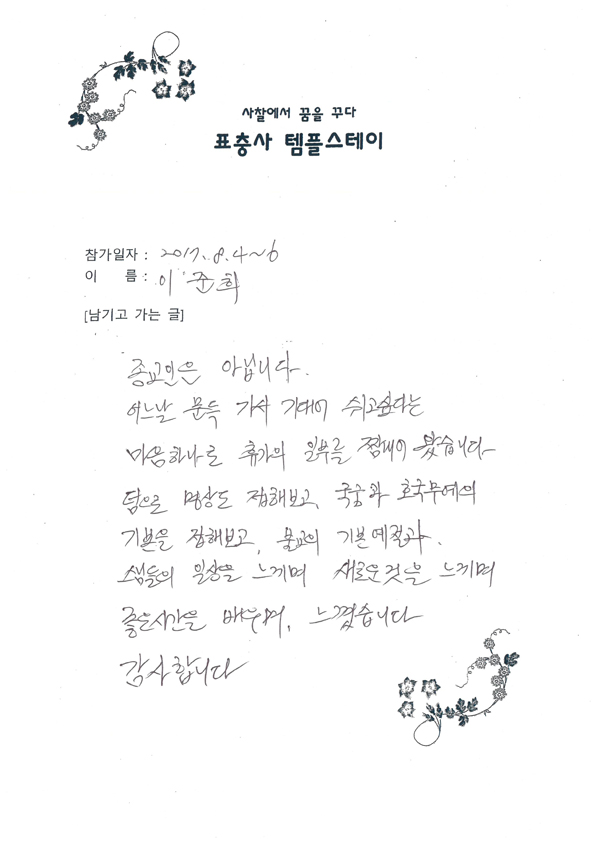 사찰에서 꿈을 꾸다
표충사 템플스테이
참가일자 : 2017. 8. 4~6
이 름 : 이 준희
[남기고 가는 글]
종교인은 아닙니다.
어느날 문득 가서 기대어 쉬고싶다는
마음하나로 휴가의 일부를 쪼개어 왔습니다
덤으로 명상도 접해보고, 국궁과 호국무예의
기본을 접해보고, 불교의 기본예절과.
스님들의 일상을 느끼며 새로운것을 느끼며
좋은시간을 배우며, 느꼈습니다
감사합니다